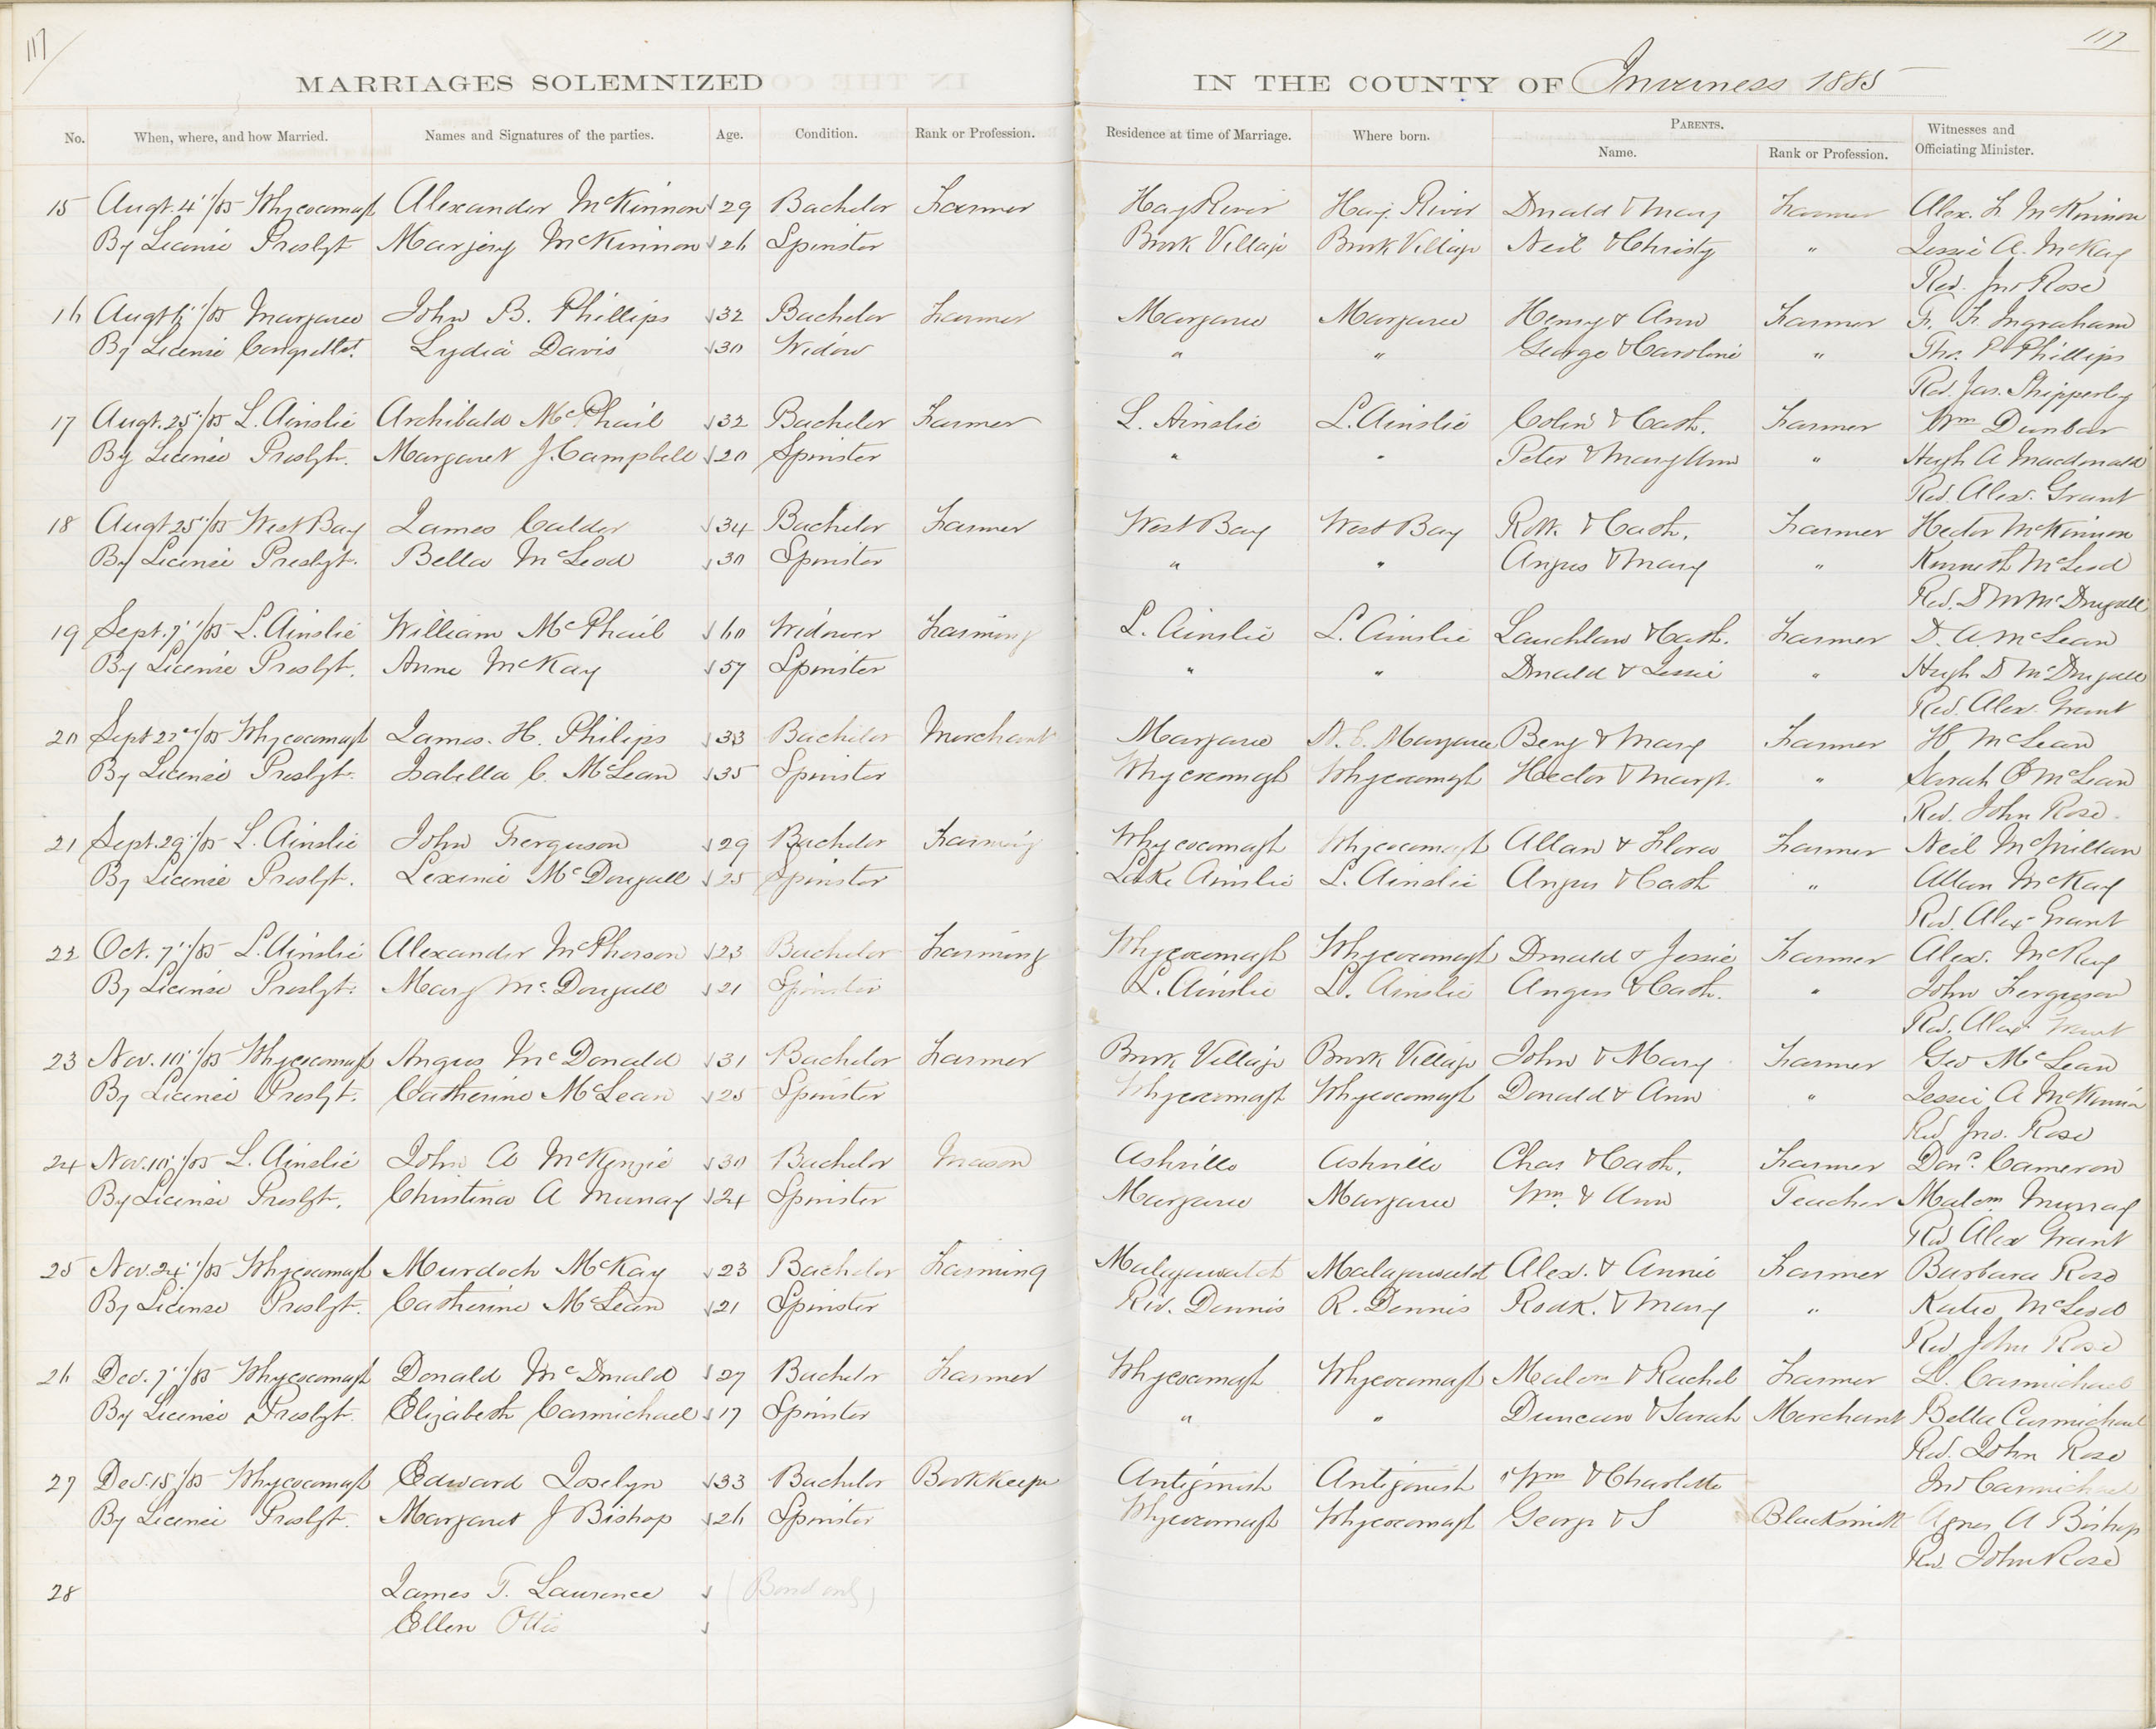 117
117
MARRIAGES SOLEMNIZED IN THE COUNTY OF Inverness 1885
No. When, where, and how Married. Names and Signatures of the parties. Age. Condition. Rank or Profession. Residence at time of Marriage. Where born. PARENTS. Name. Rank or Profession. Witnesses and Officiating Minister.
15 Augt. 4"/85 Whycocomagh Alexander McKinnon 29 Bachelor Farmer Hay River Hay River Donald & Mary Farmer Alex. F. McKinnon
By License Presbyt Marjery McKinnon 26 Spinster Brook Village Brook Village Neil & Christy " Jessie A. McKay
Rev. Jno Rose
16 Augt 6"/85 Margaree John B. Phillips 32 Bachelor Farmer Margaree Margaree Henry & Ann Farmer F. F. Ingraham
By License Congrellst. Lydia Davis 30 Widow " " George & Caroline " Thos. P. Phillips
Rev. Jas. Shipperley
17 Augt. 25"/85 L. Ainslie Archibald McPhail 32 Bachelor Farmer L. Ainslie L. Ainslie Colin & Cath. Farmer Wm Dunbar
By License Presbyt. Margaret J. Campbell 20 Spinster " " Peter & Mary Ann " Hugh A Macdonald
Rev. Alex. Grant
18 Augt 25"/85 West Bay James Calder 34 Bachelor Farmer West Bay West Bay Rodk. & Cath. Farmer Hector McKinnon
By License Presbyt. Bella McLeod 30 Spinster " " Angus & Mary " Kenneth McLeod
Rev. D McDougall
19 Sept. 7"/85 L. Ainslie William McPhail 60 Widower Farming L. Ainslie L. Ainslie Lauchlan & Cath. Farmer D. A. McLean
By License Presbyt. Anne McKay 57 Spinster " " Donald & Jessie " Hugh D McDougall
Rev. Alex. Grant
20 Sept 22"/85 Whycocomagh James. H. Philips 33 Bachelor Merchant Margaree N. E. Margaree Benj & Mary Farmer H McLean
By License Presbyt. Isabella C. McLean 35 Spinster Whycocomagh Whycocomagh Hector & Margt. " Sarah C McLean
Rev. John Rose.
21 Sept. 29"/85 L. Ainslie John Ferguson 29 Bachelor Farming Whycocomagh Whycocomagh Allan & Flora Farmer Neil McMillan
By License Presbyt. Lexinie McDougall 25 Spinster Lake Ainslie L. Ainslie Angus & Cath " Allan McKay
Rev. Alex Grant
22 Oct. 7"/85 L. Ainslie Alexander McPherson 23 Bachelor Farming Whycocomagh Whycocomagh Donald & Jessie Farmer Alex. McKay
By License Presbyt. Mary McDougall 21 Spinster L. Ainslie L. Ainslie Angus & Cath. " John Ferguson
Rev. Alex Grant
23 Nov. 10"/85 Whycocomagh Angus McDonald 31 Bachelor Farmer Brook Village Brook Village John & Mary Farmer Geo McLean
By License Presbyt. Catherine McLean 25 Spinster Whycocomagh Whycocomagh Donald & Ann " Jessie A McKinnon
Rev Jno. Rose
24 Nov. 10"/85 L. Ainslie John A McKenzie 30 Bachelor Mason Ashville Ashville Chas & Cath. Farmer Don. Cameron
By License Presbyt. Christina A Murray 24 Spinster Margaree Margaree Wm. & Ann Teacher Malcm Murray
Rev Alex Grant
25 Nov. 24"/85 Whycocomagh Murdoch McKay 23 Bachelor Farming Malagawaldt Malagawaldt Alex. & Annie Farmer Barbara Rose
By License Presbyt. Catherine McLean 21 Spinster Riv. Dennis R. Dennis Rodk. & Mary " Katie McLeod
Rev John Rose
26 Dec. 7"/85 Whycocomagh Donald McDonald 27 Bachelor Farmer Whycocomagh Whycocomagh Malcm & Rachel Farmer L. Carmichael
By License Presbyt. Elizabeth Carmichael 17 Spinster " " Duncan & Sarah Merchant Bella Carmichael
Rev. John Rose
27 Dec. 15"/85 Whycocomagh Edward Joselyn 33 Bachelor Bookkeeper Antigonish Antigonish Wm & Charlotte Jno Carmichael
By License Presbyt. Margaret J Bishop 26 Spinster Whycocomagh Whycocomagh George & S Blacksmith Agnes A Bishop
Rev John Rose
28 James T. Laurence (Bond only)
Ellen Ottis